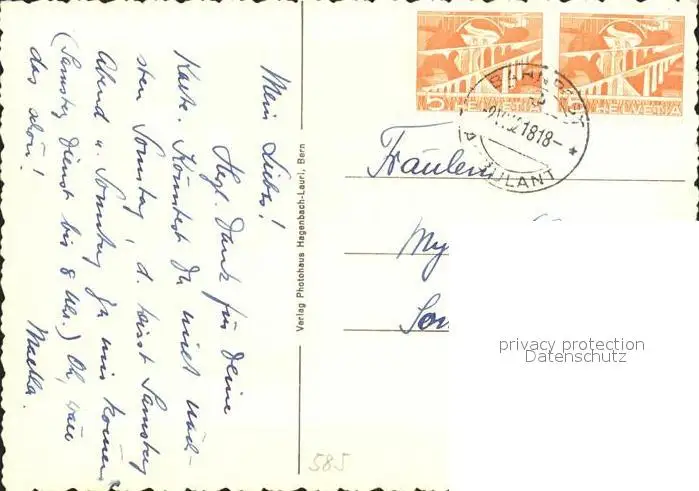 Mein Liebes!
Hzgl. Dank für Deine
Karte. Könntest Du nicht näch-
sten Sonntag, d. heisst Samstag
Abend u. Sonntag zu mir kommen?
(Samstag Dienst bis 8 Uhr.) Oh, wäre
das schön!
Martha.
Verlag Photohaus Hagenbach-Lauri, Bern
5 HELVETIA
5 HELVETIA
BAHNPOST
18-
AMBULANT
Fräulein
My
privacy protection
Datenschutz
585